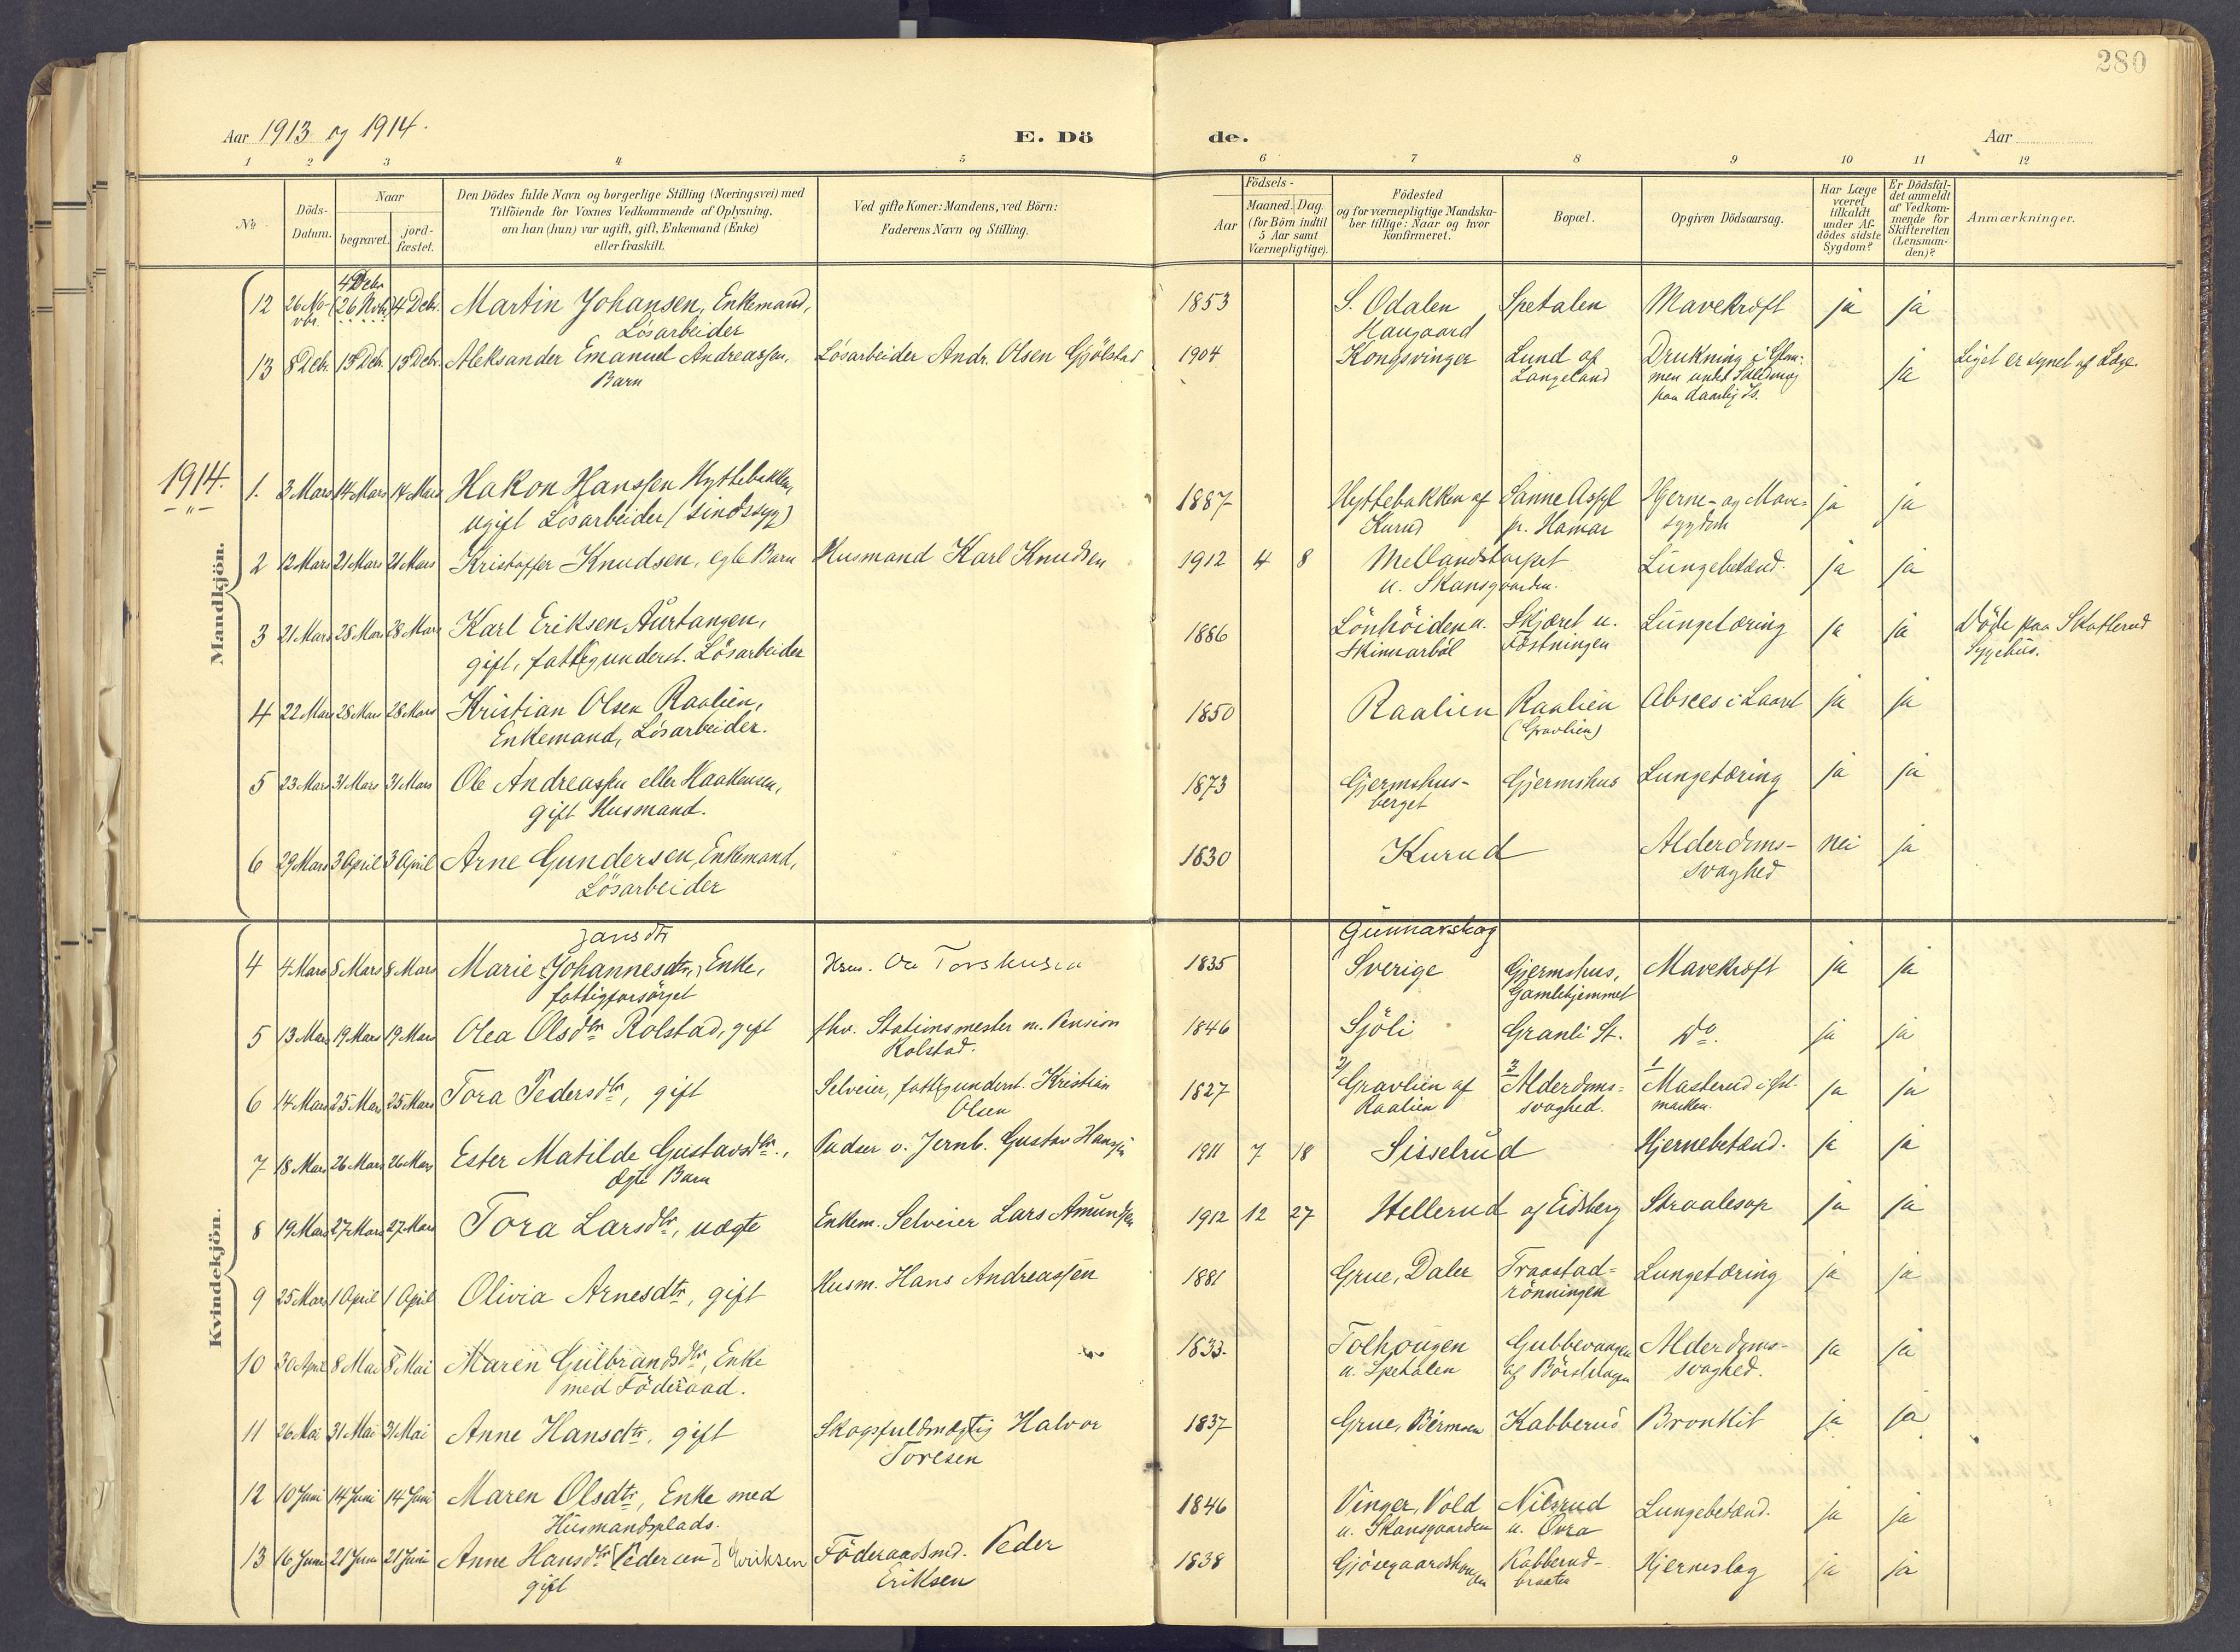 280
Aar 1913 og 1914.
E. Dö de.
Aar
1 2 3 4 5 6 7 8 9 10 11 12
No
Döds-Datum.
Naar
begravet.
jord-fæstet.
Den Dödes fulde Navn og borgerlige Stilling (Næringsvei) med
Tilföiende for Voxnes Vedkommende af Oplysning,
om han (hun) var ugift, gift, Enkemand (Enke)
eller fraskilt.
Ved gifte Koner: Mandens, ved Börn:
Faderens Navn og Stilling.
Födsels-
Aar
Maaned. Dag.
(for Börn indtil
5 Aar samt
Værnepligtige).
Födested
og for værnepligtige Mandska-
ber tillige: Naar og hvor
konfirmeret.
Bopæl.
Opgiven Dödsaarsag.
Har Læge
været
tilkaldt
under Af-
dödes sidste
Sygdom?
Er Dödsfal-
det anmeldt
af Vedkom-
mende for
Skifteretten
(Lensman-
den)?
Anmærkninger.
Mandkjön.
4 Debr
12 26 No-vbr. (26 Novbr) 4 Debr. Martin Johansen, Enkemand, 1853 S. Odalen Spetalen Mavekræft ja ja
Lösarbeider Haugaard
13 8 Debr. 13 Debr. 13 Debr. Aleksander Emanuel Andreassen, Lösarbeider Andr. Olsen Gjölstad 1904 Kongsvinger Lund af Drukning i Glom- ja Liget er synet af Læge.
Barn Langeland men
paa daarlig Is.
1914.
1. 3 Mars 14 Mars 14 Mars Hakon Hanssen Hyttebakken, 1887 Hyttebakken af Sanne Asyl Hjerne- og Mave- ja ja
ugift Lösarbeider (sindssyg) Kurud pr. Hamar sygdom
2 12 Mars 21 Mars 21 Mars Kristoffer Knudsen, egte Barn Husmand Karl Knudsen 1912 4 8 Mellandstorpet Lungebetænd. ja ja
u. Skansgaarden.
3 21 Mars 28 Mars 28 Mars Karl Eriksen Aurtangen, 1886 Lönhöiden u. Skjæret u. Lungetæring ja ja Döde paa Skotterud
gift, fattigunderst. Lösarbeider Skinnarböl Fæstningen Sygehus.
4 22 Mars 28 Mars 28 Mars Kristian Olsen Raalien, 1850 Raalien Raalien Absces i Laaret ja ja
Enkemand, Lösarbeider. (Gravlien)
5 23 Mars 31 Mars 31 Mars Ole Andreassen eller Haakensen, 1873 Gjermshus- Gjermshus Lungetæring ja ja
gift Husmand. berget
6 29 Mars 3 April 3 April Arne Gundersen, Enkemand, 1830 Kurud Alderdoms- nei ja
Lösarbeider svaghed
Kvindekjön.
Jansdtr Gunnarskog
4 4 Mars 8 Mars 8 Mars Marie Johannesdtr, Enke, 1835 Sverige Gjermshus, Mavekræft ja ja
fattigforsörget Gamlehjemmet
5 13 Mars 19 Mars 19 Mars Olea Olsdtr Rolstad, gift fhv. Stationsmester m. Pension 1846 Sjöli Granli St. Do. ja ja
Rolstad.
6 14 Mars 25 Mars 25 Mars Tora Pedersdtr, gift Selveier, fattigunderst. Kristian 1827 2/ Gravlien af 3 Alderdoms- 1 Masterud i Øst- ja ja
Olsen Raalien svaghed. marken.
7 18 Mars 26 Mars 26 Mars Ester Matilde Gustavsdtr., Pudser v. Jernb. Gustav Hanssen 1911 7 18 Sisselrud Hjernebetænd. ja ja
ægte Barn
8 19 Mars 27 Mars 27 Mars Tora Larsdtr, uægte Enkem. Selveier Lars Amundsen 1912 12 27 Hellerud af Eidsberg Straalesop ja ja
9 25 Mars 1 April 1 April Olivia Arnesdtr, gift Husm. Hans Andreassen 1881 Grue, Daler Traastad- Lungetæring ja ja
rönningen
10 30 April 8 Mai 8 Mai Maren Gulbrandsdtr, Enke 1833. Tolhougen Gubbevangen Alderdoms- ja ja
med Föderaad. u. Spetalen af svaghed.
11 26 Mai 31 Mai 31 Mai Anne Hansdtr, gift Skogsfuldmægtig Halvor 1837 Grue, Kabberud Bronkit ja ja
Toresen
12 10 Juni 14 Juni 14 Juni Maren Olsdtr, Enke med 1846 Vinger, Vold Nilsrud Lungebetænd. ja ja
Husmandsplads. u. Skansgaarden u. Övra
13 16 Juni 21 Juni 21 Juni Anne Hansdtr [Pedersen] Eriksen Föderaadsmd. Peder 1838 Kabberud- Hjerneslag ja ja
gift Eriksen braaten